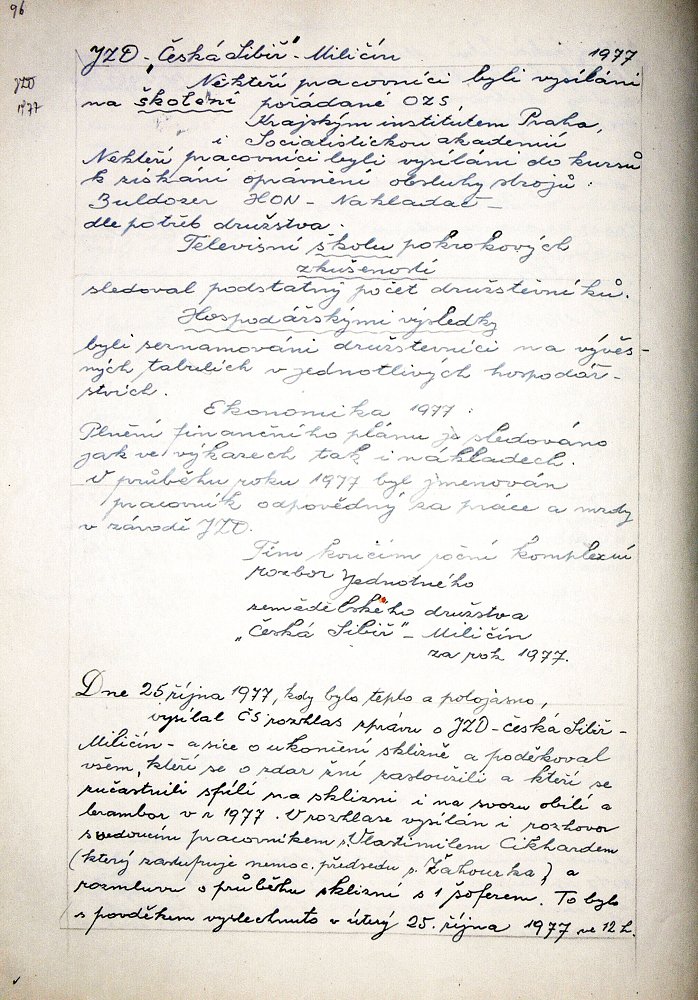 96
JZD - „Česká Sibiř" - Miličín 1977
JZD
1977
Někteří pracovníci byli vysíláni
na školení pořádané OZS,
Krajským institutem Praha,
i Socialistickou akademií
Někteří pracovníci byli vysíláni do kursů
k získání oprávnění obsluhy strojů:
Buldozer HON - Nakladač -
dle potřeb družstva.
Televisní školu pokrokových
zkušeností
sledoval podstatný počet družstevníků.
Hospodářskými výsledky
byli seznamováni družstevníci na vývěs-
ných tabulích v jednotlivých hospodář-
stvích.
Ekonomika 1977:
Plnění finančního plánu je sledováno
jak ve výkazech tak i nákladech.
V průběhu roku 1977 byl jmenován
pracovník odpovědný za práce a mzdy
v závodě JZD.
Tím končím roční komplexní
rozbor Jednotného
zemědělského družstva
„Česká Sibiř" - Miličín
za rok 1977.
Dne 25 října 1977, kdy bylo teplo a polojasno,
vysílal ČS rozhlas zprávu o JZD - Česká Sibiř -
Miličín - a sice o ukončení sklizně a poděkoval
všem, kteří se o zdar žní zasloužili a kteří se
zúčastnili sfílí na sklizni i na svozu obilí a
brambor v r 1977. V rozhlase vysílán i rozhovor
s vedoucím pracovníkem p. Vlastimilem Cikhardem
(který zastupuje nemoc. předsedu p. Záhourka,) a
rozmluvu o průběhu sklizní s 1 šoferem. To bylo
s povděkem vyslechnuto v úterý 25. října 1977 ve 12 h.